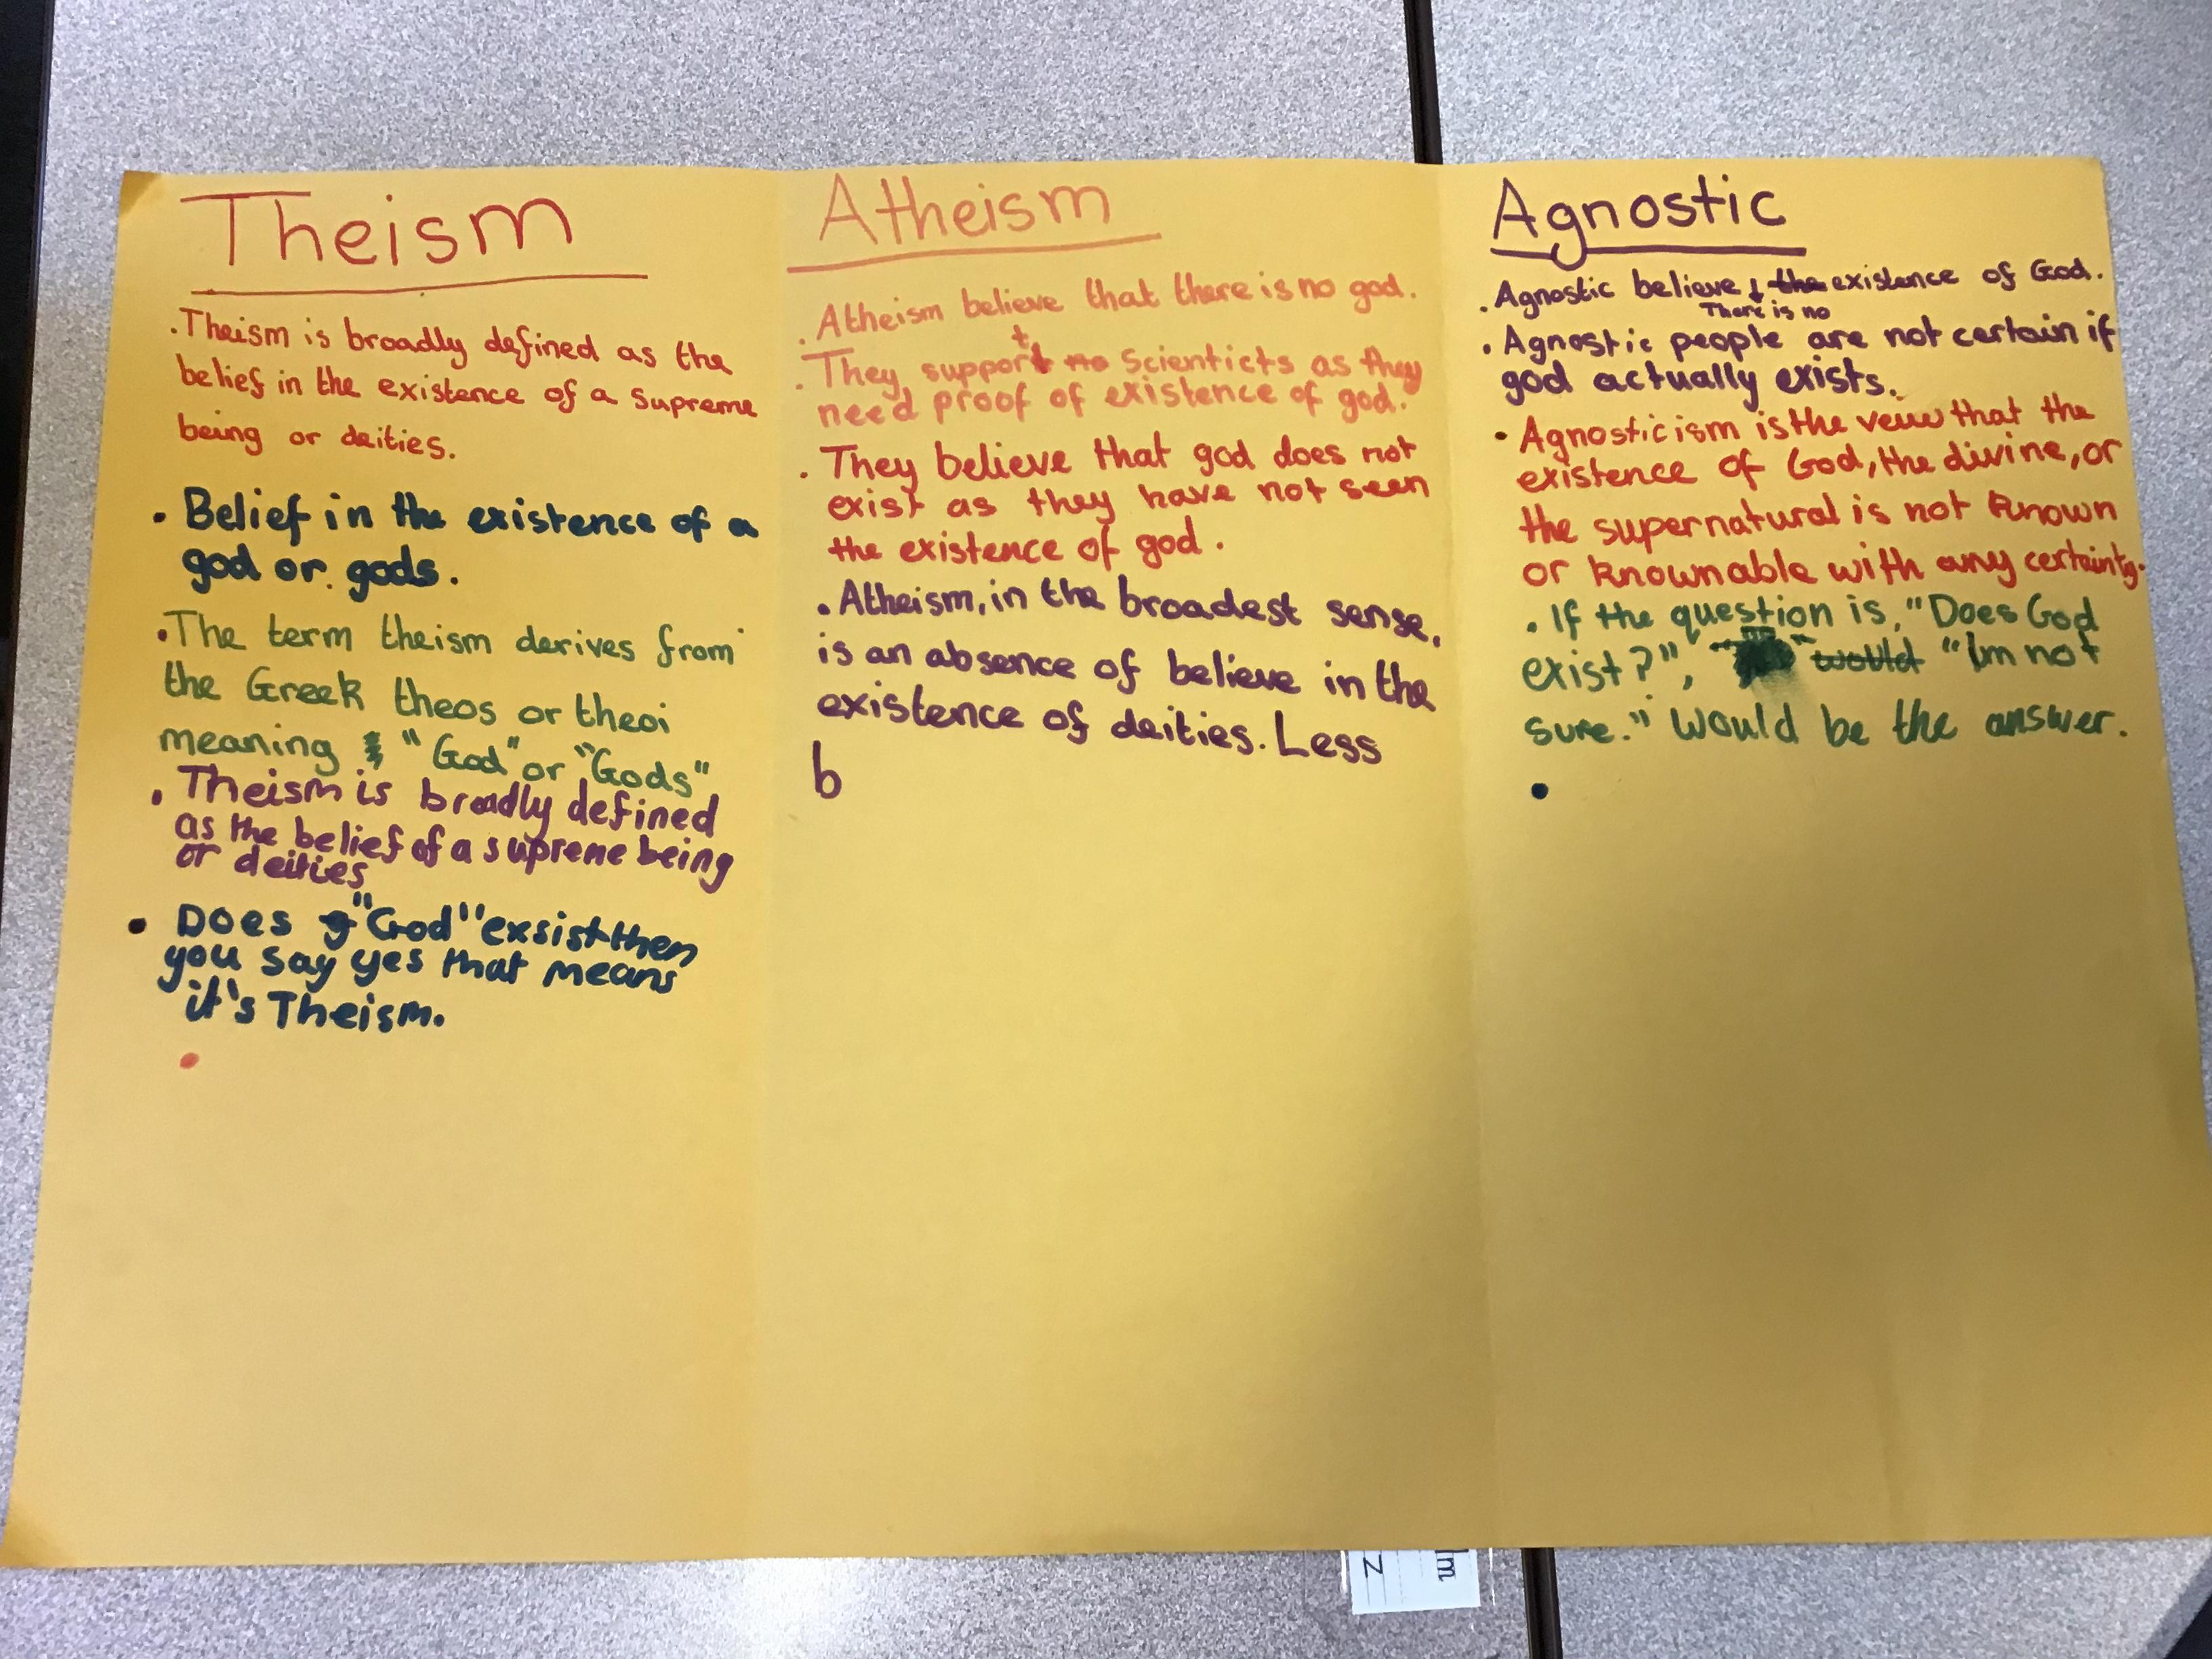 Theism
.Theism is broadly defined as the
belief in the existence of a supreme
being or deities.
. Belief in the existence of a
god or gods.
.The term theism derives from
the Greek theos or theoi
meaning "God" or "Gods"
. Theism is broadly defined
as the belief of a supreme being
or deities
. Does "God" exsist then
you say yes that means
it's Theism.
Atheism
. Atheism believe that there is no god.
. They support no Scienticts as they
need proof of existence of god.
. They believe that god does not
exist as they have not seen
the existence of god.
. Atheism, in the broadest sense,
is an absence of believe in the
existence of deities. Less
b
Agnostic
. Agnostic believe the existence of God.
There is no
. Agnostic people are not certain if
god actually exists.
. Agnosticism is the veiw that the
existence of God, the divine, or
the supernatural is not known
or knownable with any certainty.
. If the question is, "Does God
exist?", would "Im not
sure." Would be the answer.
lm
Z